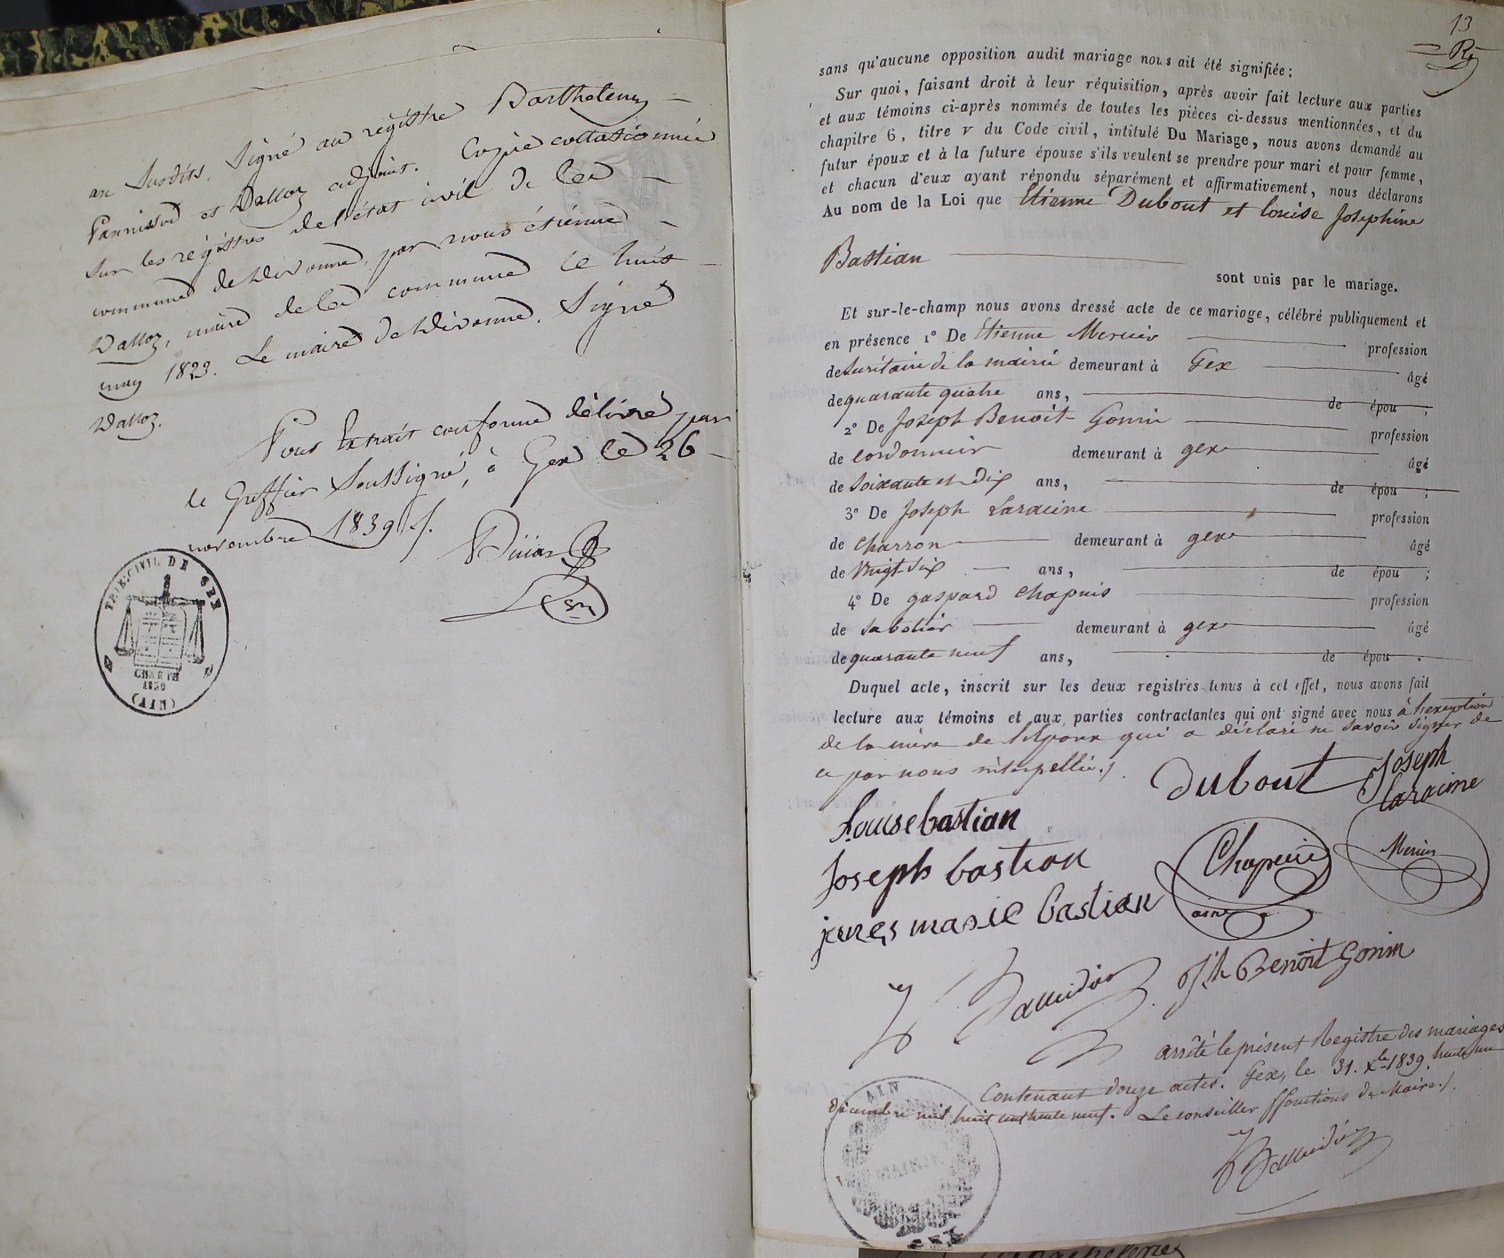 an susdits. Signé au régistre Barthelemy
Pannissod et Dalloz adjoint. Copie collationnée
sur les régistres de l'état civil de la
commune de Divonne, par nous étienne
Dalloz, maire de la commune le huit
may 1823. Le maire de Divonne. Signé
Dalloz.
Pour Extrait conforme délivré par
le Greffier soussigné, à Gex le 26
novembre 1839 /.
TRIB. CIVIL DE GEX
CHARTE
1830
(AIN)
13
sans qu'aucune opposition audit mariage nous ait été signifiée;
Sur quoi, faisant droit à leur réquisition, après avoir fait lecture aux parties
et aux témoins ci-après nommés de toutes les pièces ci-dessus mentionnées, et du
chapitre 6, titre v du Code civil, intitulé Du Mariage, nous avons demandé au
futur époux et à la future épouse s'ils veulent se prendre pour mari et pour femme,
et chacun d'eux ayant répondu séparément et affirmativement, nous déclarons
Au nom de la Loi que Etienne Dubout et Louise Josephine
Bastian
sont unis par le mariage.
Et sur-le-champ nous avons dressé acte de ce mariage, célébré publiquement et
en présence 1° De Etienne Mercier profession
de Secrétaire de la mairie demeurant à Gex âgé
de quarante quatre ans, de épou ;
2° De Joseph Benoit Gonin profession
de cordonnier demeurant à gex âgé
de soixante et dix ans, de épou ;
3° De Joseph Laracine profession
de charron demeurant à gex âgé
de vingt six ans, de épou ;
4° De gaspard Chapuis profession
de sabotier demeurant à gex âgé
de quarante neuf ans, de épou .
Duquel acte, inscrit sur les deux registres tenus à cet effet, nous avons fait
lecture aux témoins et aux parties contractantes qui ont signé avec nous à l'exception
de la mère de l'époux qui a déclaré ne savoir signer de
ce par nous interpellée./.
Dubout Joseph
Laracine
Louise bastian
Joseph bastian Chapuis Mercier
aine
marie bastian
Jh Benoit Gonin
arrêté le présent Registre des mariages
Contenant douze actes. Gex, le 31. Xbre 1839. trente un
décembre mil huit cent trente neuf. Le conseiller ffonctions de Maire./.
AIN
MAIRIE
GEX